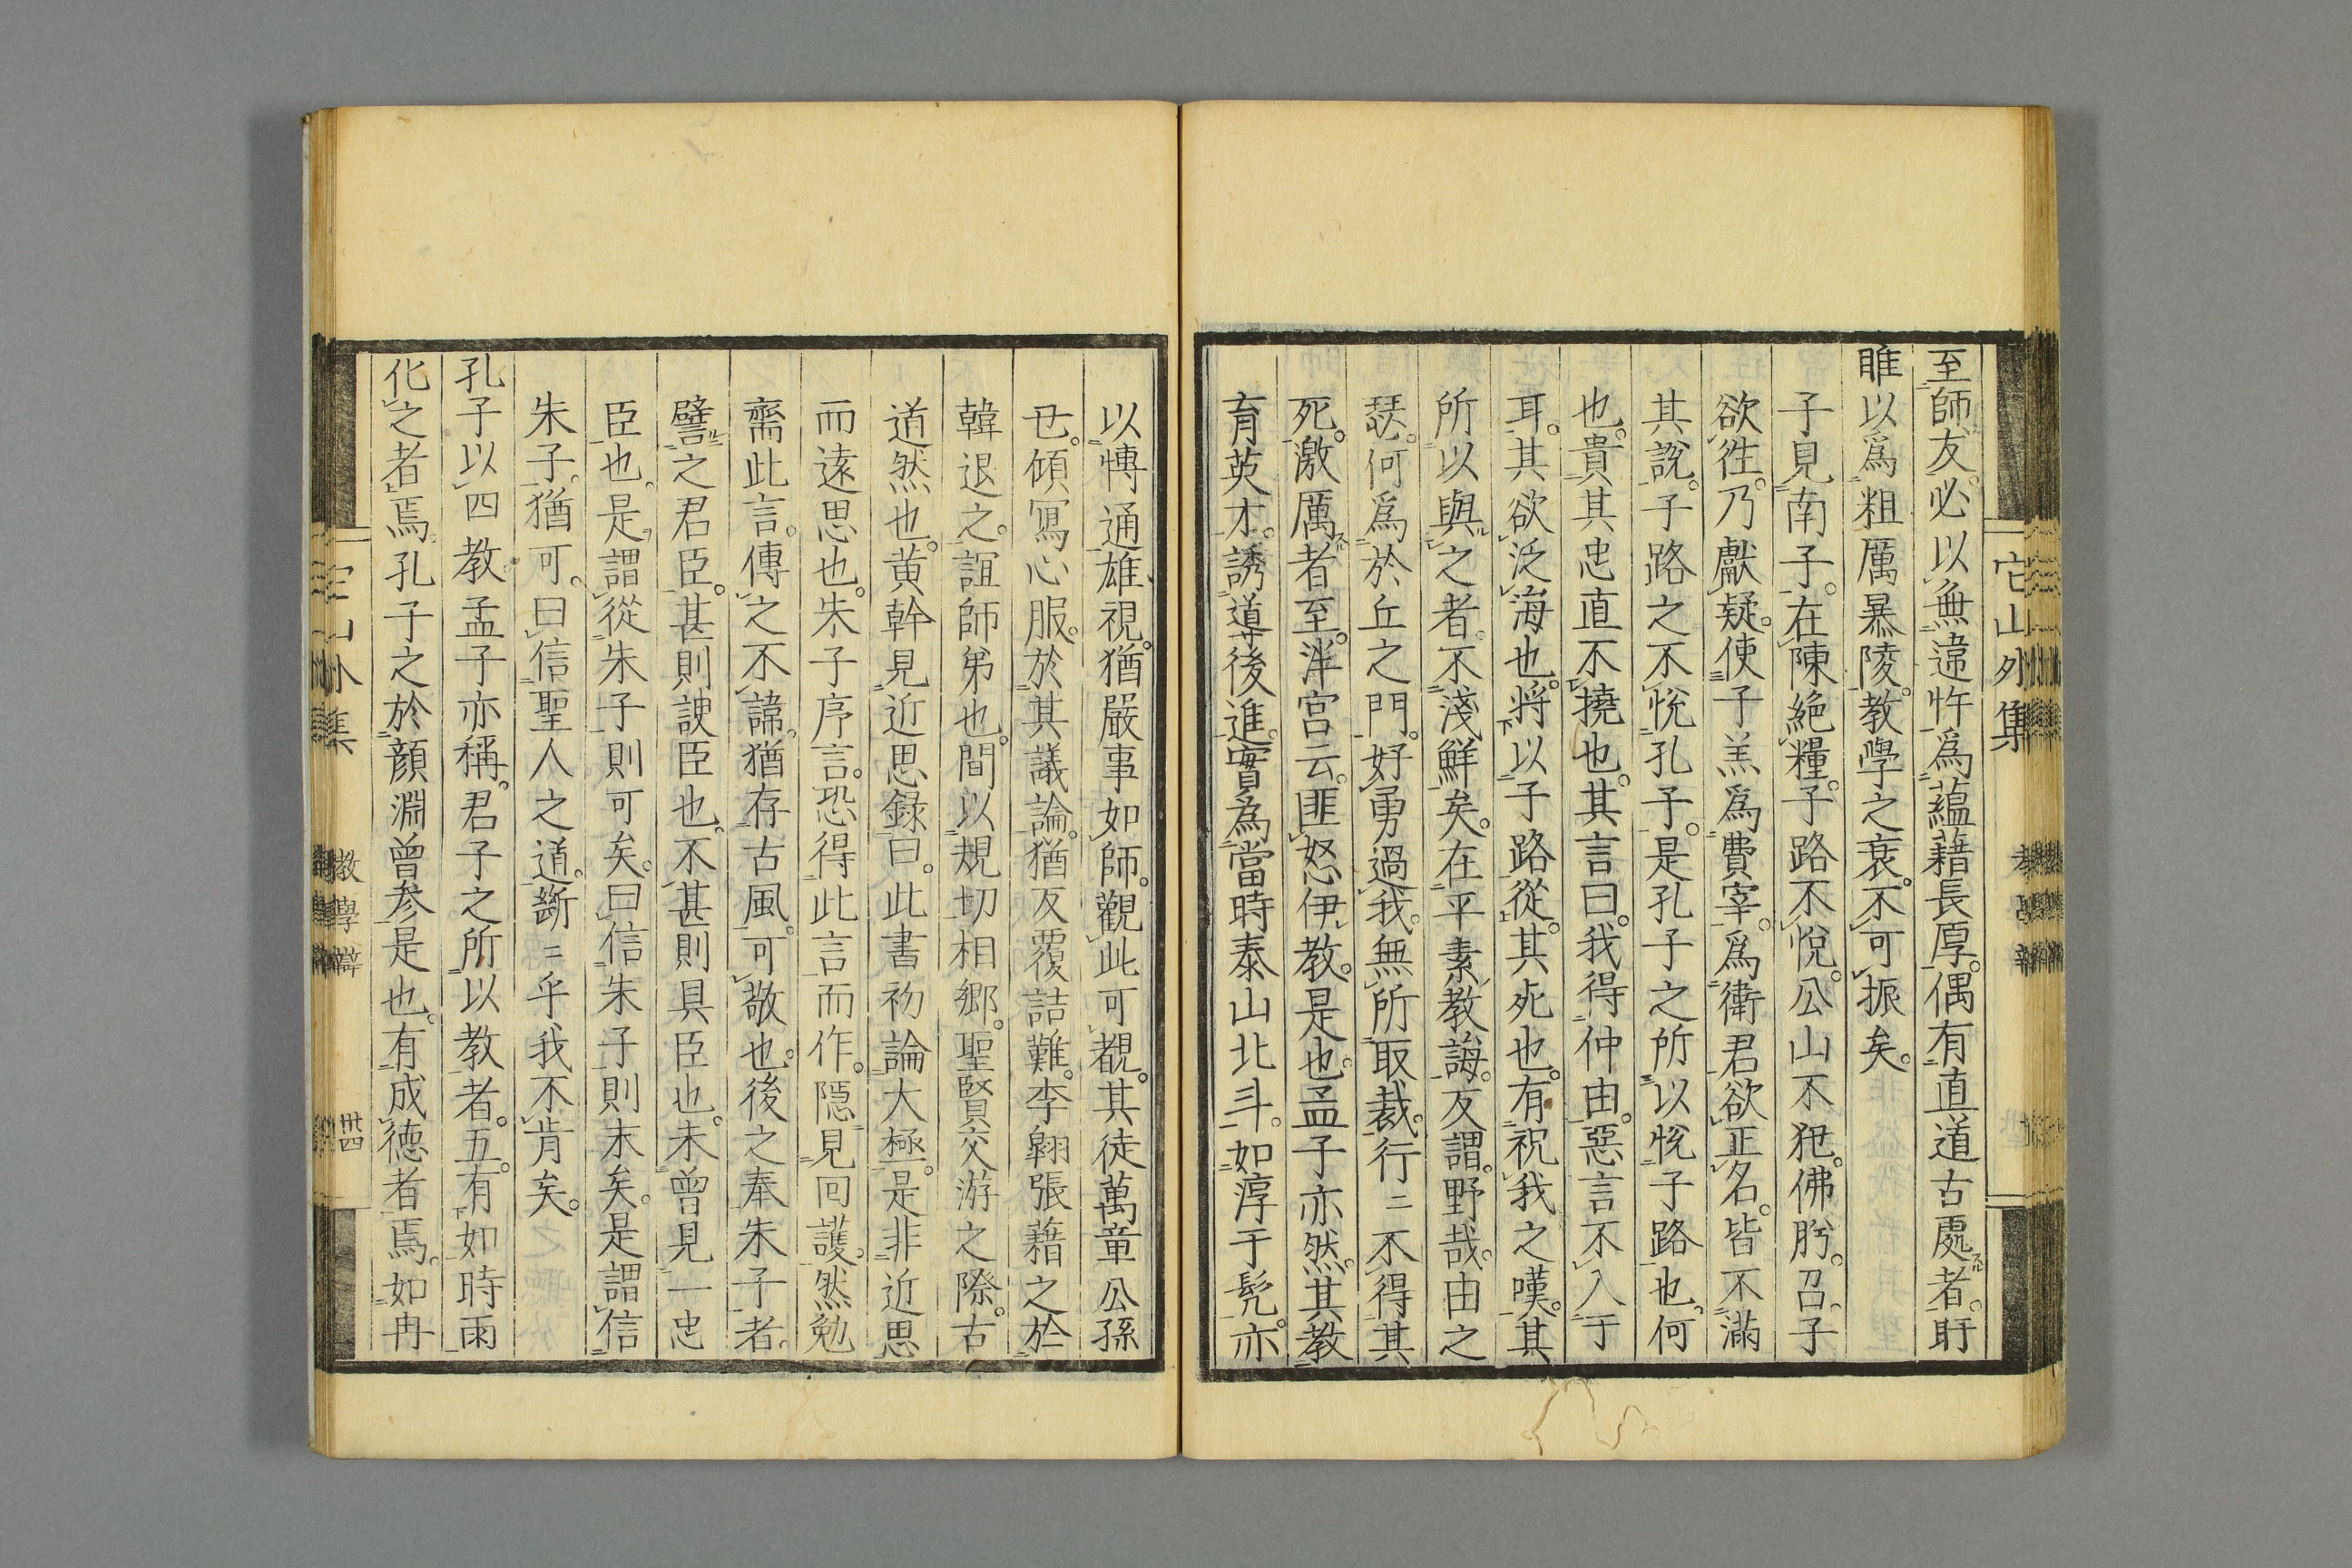 至師友必以無違忤爲蘊藉長厚。偶有直道古處者。盱
睢以爲粗厲暴陵。教學之衰。不可振矣。
子見南子。在陳絶糧。子路不悅。公山不狃。佛肸。召子
欲徃。乃獻疑。使子羔爲費宰。爲衛君欲正名。皆不滿
其說。子路之不悅孔子。是孔子之所以悅子路也。何
也。貴其忠直不撓也。其言曰。我得仲由。惡言不入于
耳。其欲泛海也。將以子路從。其死也。有祝我之嘆。其
所以與之者。不淺鮮矣。在平素教誨。反謂。野哉。由之
瑟。何爲於丘之門。好勇過我。無所取裁。行〻不得其
死。激厲者至。泮宮云。匪怒伊教。是也。孟子亦然。其教
育英才。誘導後進。實爲當時泰山北斗。如淳于髠。亦
以愽通雄視。猶嚴事如師。觀此可覩。其徒萬章公孫
丑。傾寫心服。於其議論。猶反覆詰難。李翱張藉之於
韓退之。誼師弟也。間以規切相郷。聖賢交游之際。古
道然也。黄幹見近思錄曰。此書初論大極。是非近思
而遠思也。朱子序言。恐得此言而作。隱見回護。然勉
齋此言。傳之不諱。猶存古風。可敬也。後之奉朱子者。
譬之君臣。甚則諛臣也。不甚則具臣也。未曾見一忠
臣也。是謂從朱子則可矣。曰信朱子則末矣。是謂信
朱子。猶可。曰信聖人之道。斷〻乎我不肯矣。
孔子以四教。孟子亦稱。君子之所以教者。五。有如時雨
化之者焉。孔子之於顔淵曾参是也。有成德者焉。如冉
它山外集
教學辯
卅四